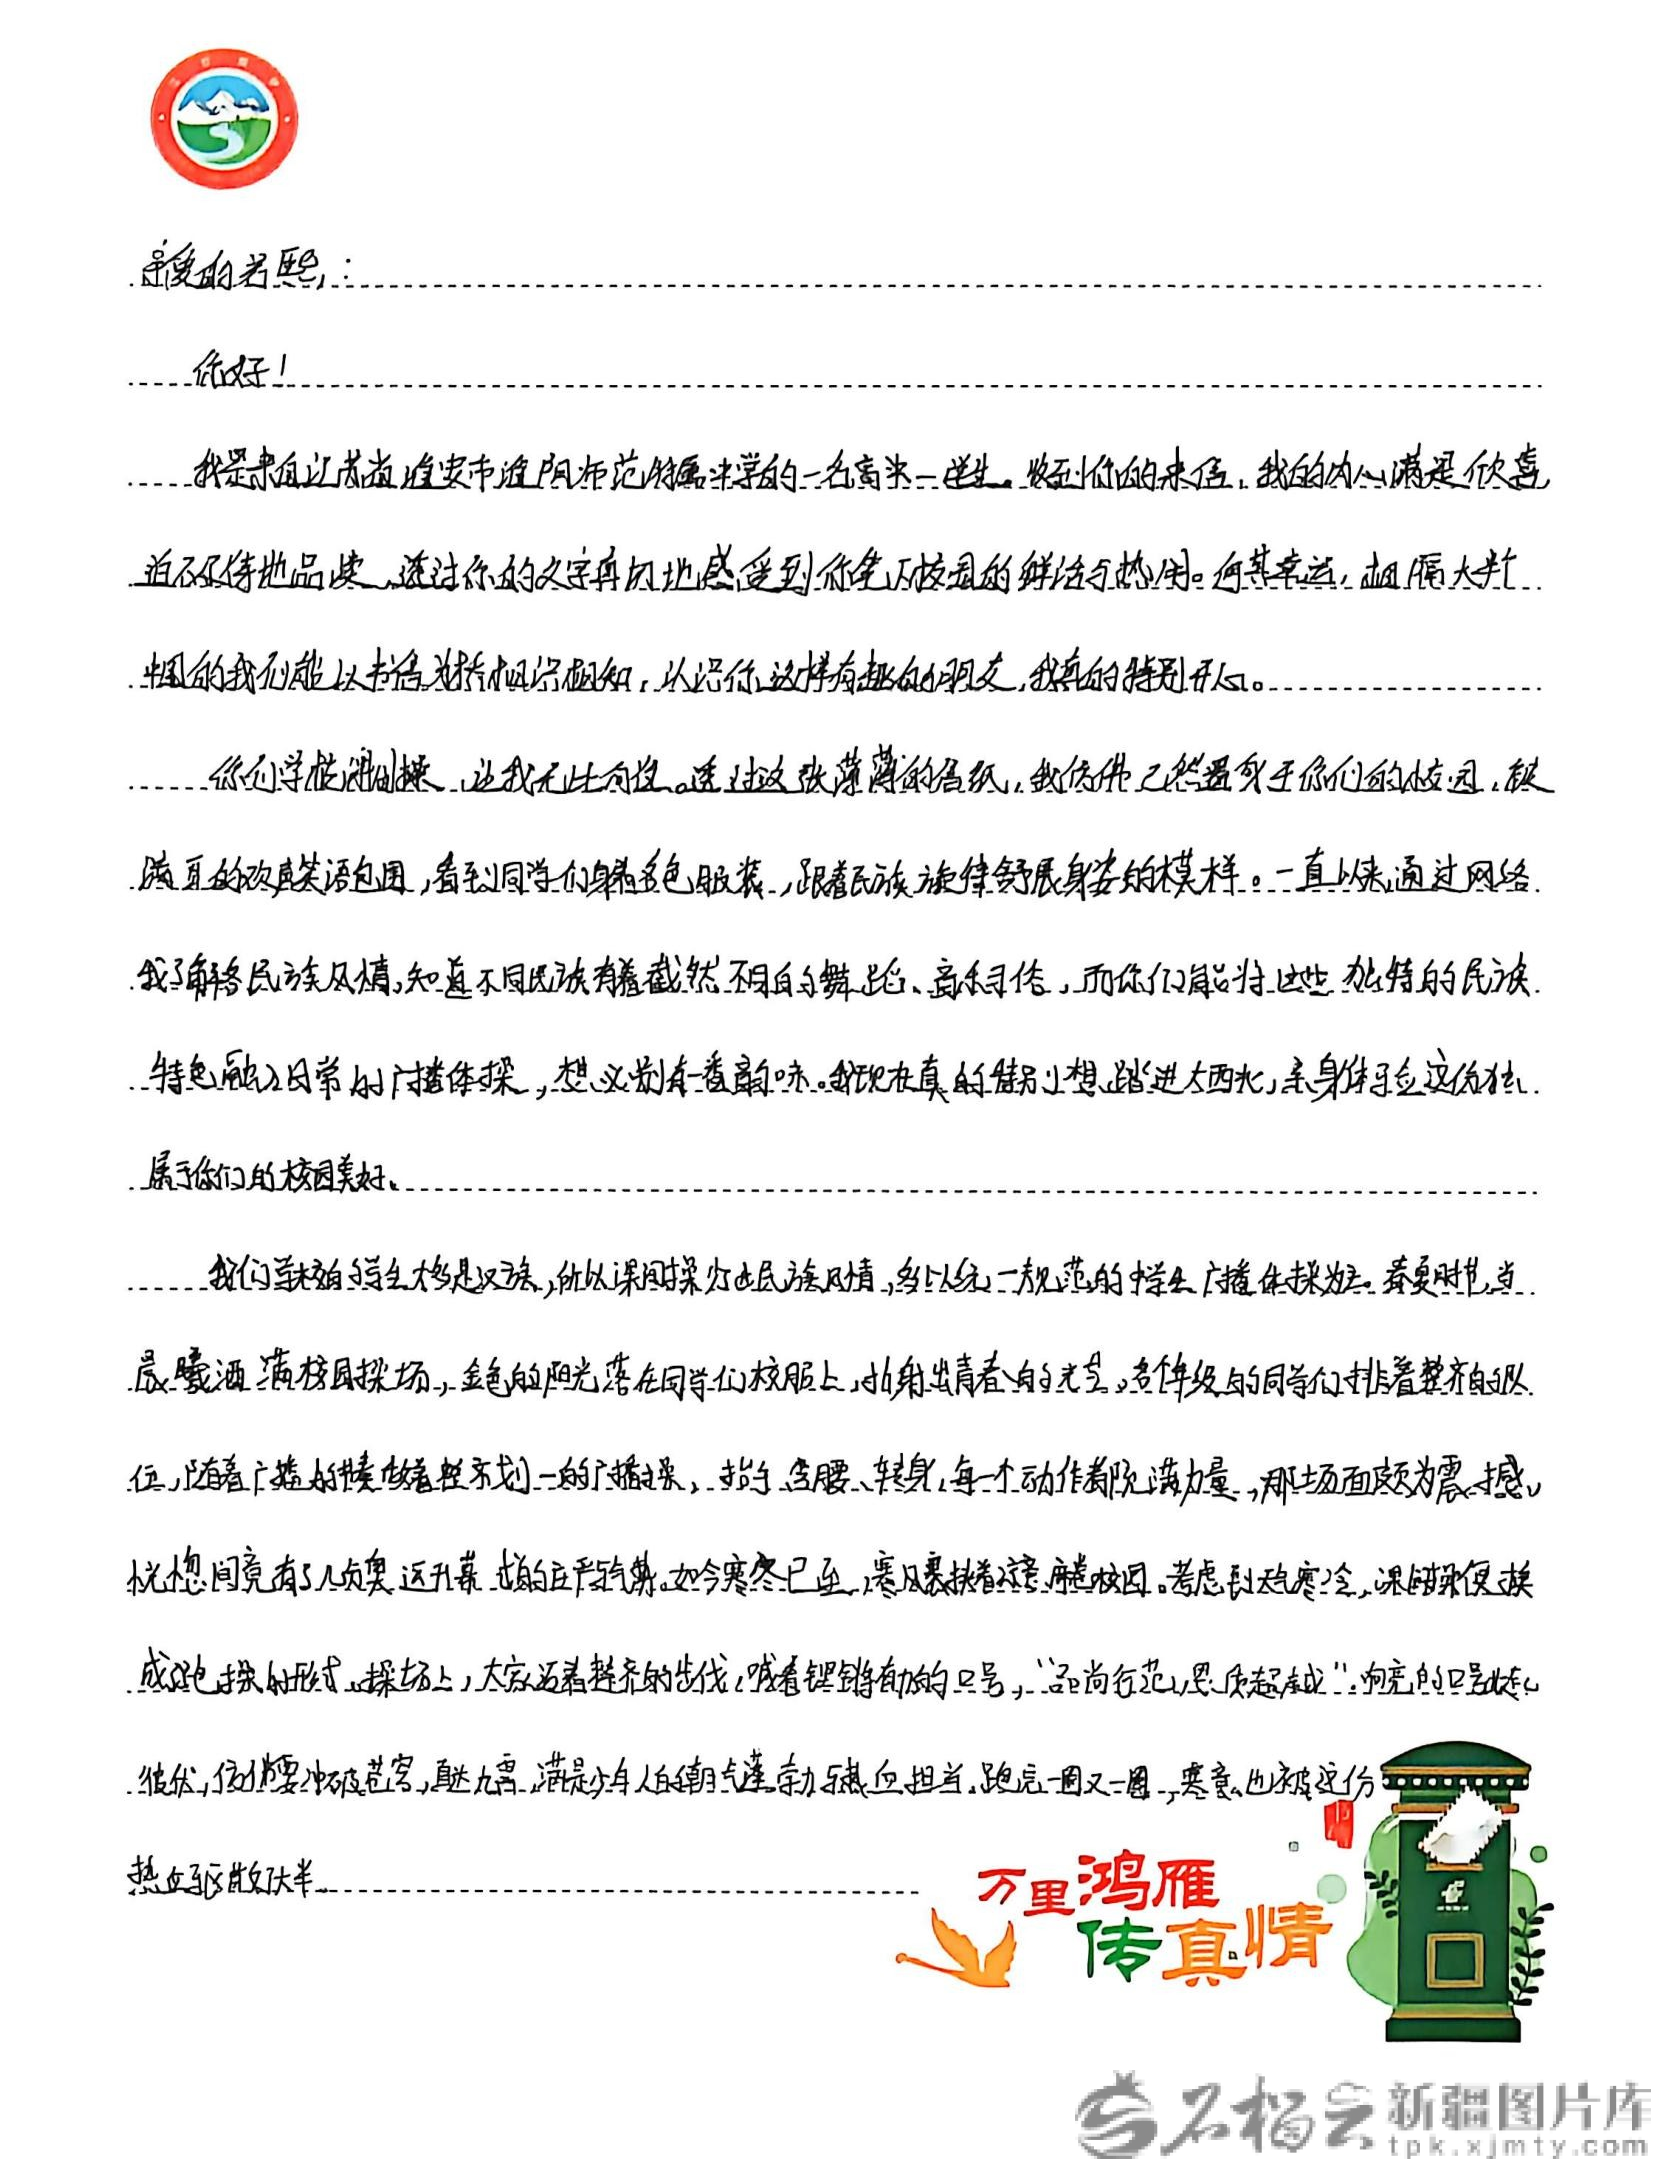 亲爱的若熙：
你好！
我是来自江苏省淮安市淮阴师范附属中学的一名高中一学生。收到你的来信，我的内心满是欣喜
迫不及待地品读，透过你的文字真切地感受到你笔下校园的鲜活与热闹。何其幸运，相隔大半个
中国的我们能以书信为桥相识相知，认识你这样有趣的朋友，我真的特别开心。
你们学校课间操，让我无比向往。透过这张薄薄的信纸，我仿佛已然置身于你们的校园，被
满耳的欢声笑语包围，看到同学们身着多色服装，跟着民族旋律舒展身姿的模样。一直以来通过网络
我了解各民族风情，知道不同民族有着截然不同的舞蹈、音乐习俗，而你们能将这些独特的民族
特色融入日常的广播体操，想必别有一番韵味。我现在真的特别想踏进大西北，亲身体会这份独
属于你们的校园美好。
我们学校的学生大多是汉族，所以课间操少了些民族风情，多以统一规范的中学生广播体操为主。春夏时节，当
晨曦洒满校园操场，金色的阳光落在同学们校服上，折射出青春的光芒，各年级的同学们排着整齐的队
伍，随着广播的节奏做着整齐划一的广播操，抬手、弯腰、转身，每一个动作都充满力量，那场面颇为震撼，
恍惚间竟有了几分奥运开幕式的庄严气势。如今寒冬已至，寒风裹挟着凉意席卷校园。考虑到天气寒冷，课间操便换
成跑操的形式。操场上，大家迈着整齐的步伐，喊着铿锵有力的口号，“品尚行范，思质超越”。响亮的口号此起
彼伏，仿佛要冲破苍穹，直达九霄，满是少年人的朝气蓬勃与热血担当。跑完一圈又一圈，寒意也被这份
热血驱散大半。
万里鸿雁
传真情
石榴云 新疆图片库
tpk.xjmty.com